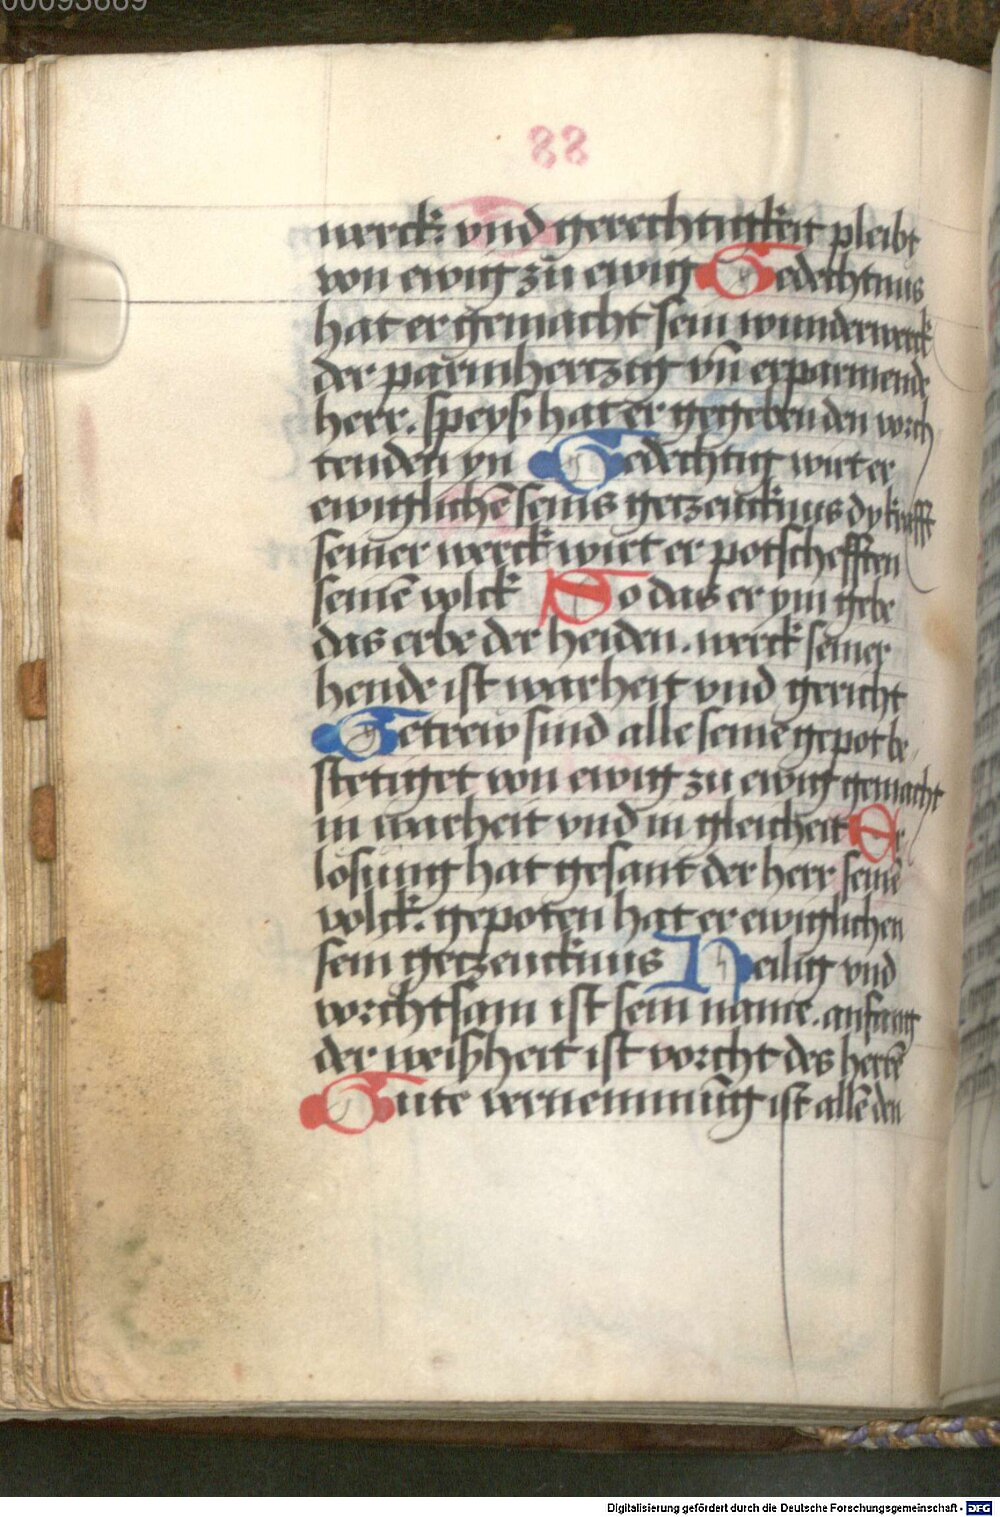 00093889
88
werck. vnd gerechtigkeit pleibt
von ewig zu ewig Gedechtnus
hat er gemacht sein wunderwerck
der parmhertzig vn̄ erparmende
herr. speyß hat er gegeben den vorch
tenden yn Gedechtig wirt er
ewiglichē seins getzeucknus dy krafft
seiner werck wirt er potschefften
seinē volck So das er ym gebe
das erbe der heiden. werck seiner
hende ist warheit vnd gericht
Getrew sind alle seine gepot be
stetiget von ewig zu ewig gemacht
in warheit vnd in gleicheit Er
losung hat gesant der herr seinē
volck. gepoten hat er ewiglichen
sein getzeucknus Heilig vnd
vorchtsam ist sein name. anfang
der weißheit ist vorcht des herrē
Gute vernemmūg ist allē den
Digitalisierung gefördert durch die Deutsche Forschungsgemeinschaft - DFG